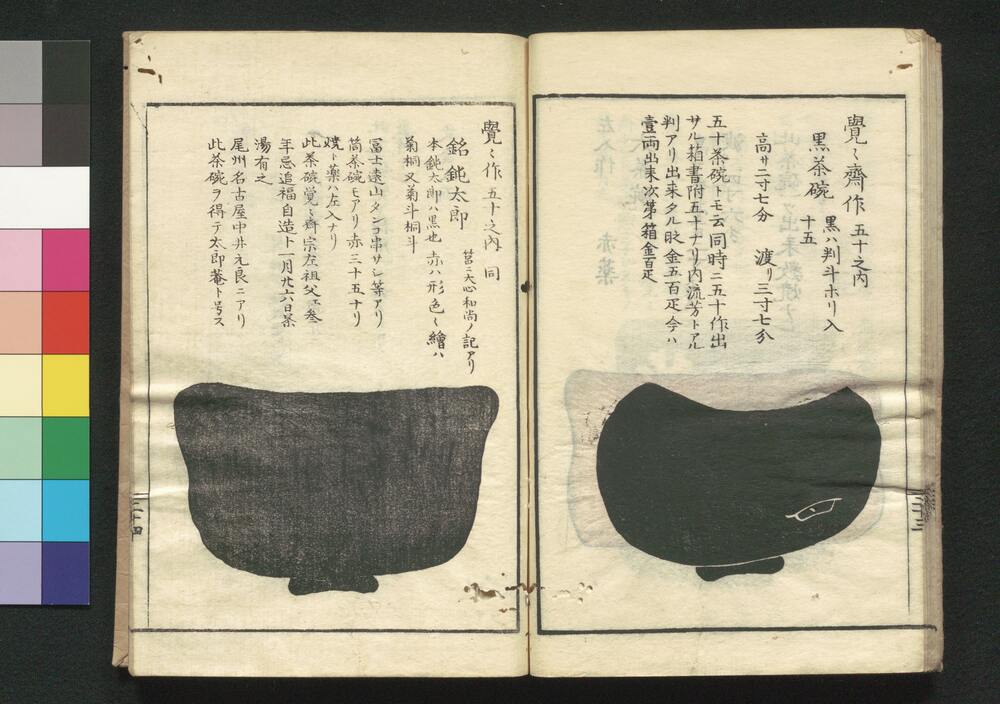 覺〻齋作 五十之内
黒茶碗 黒ハ判斗ホリ入
十五
高サ二寸七分 渡リ三寸七分
五十茶碗トモ云同時ニ五十作出
サル箱書附五十ナリ内流芳トアル
判アリ出来タル時金五百疋今ハ
壹両出来次第箱金百疋
二十三
覺〻作 五十之内 同
銘鈍太郎 筥ニ大心和尚ノ記アリ
本鈍太郎ハ黒也 赤ハ形色〻繪ハ
菊桐又菊斗桐斗
冨士遠山タンコ串サシ等アリ
筒茶碗モアリ赤三十五ナリ
焼ト薬ハ左入ナリ
此茶碗覺〻齊宗左祖父
年忌追福自造ト一月廿六日茶
湯有之
尾州名古屋中井元良ニアリ
此茶碗ヲ得テ太郎菴ト号ス
二十四